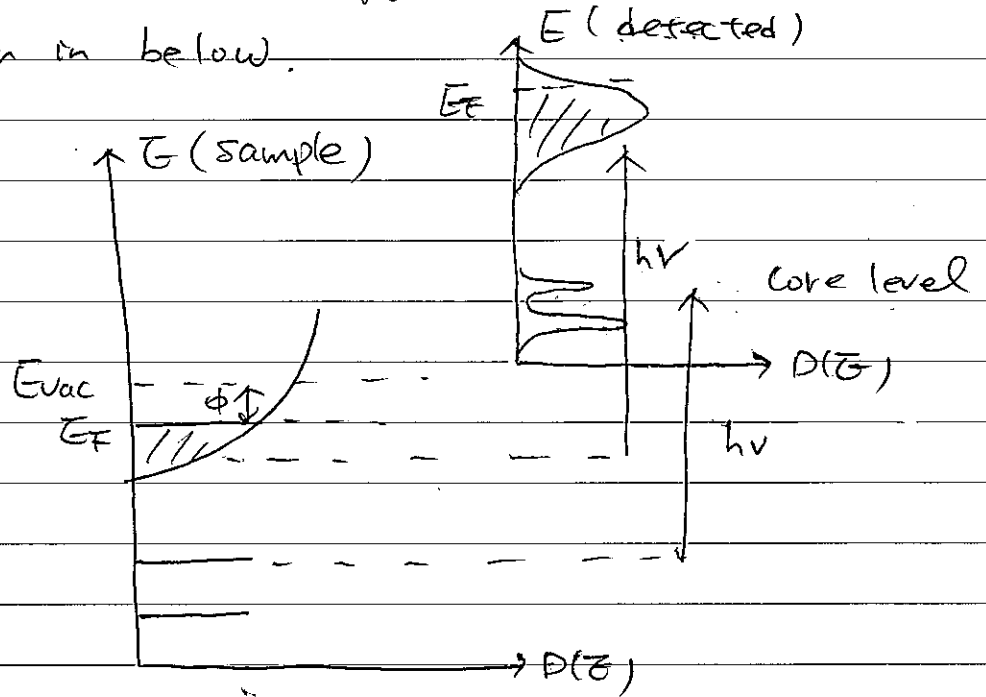 in below.
E (detected)
E_F
E (sample)
hν
core level
D(E)
Evac
ϕ
E_F
hν
D(E)